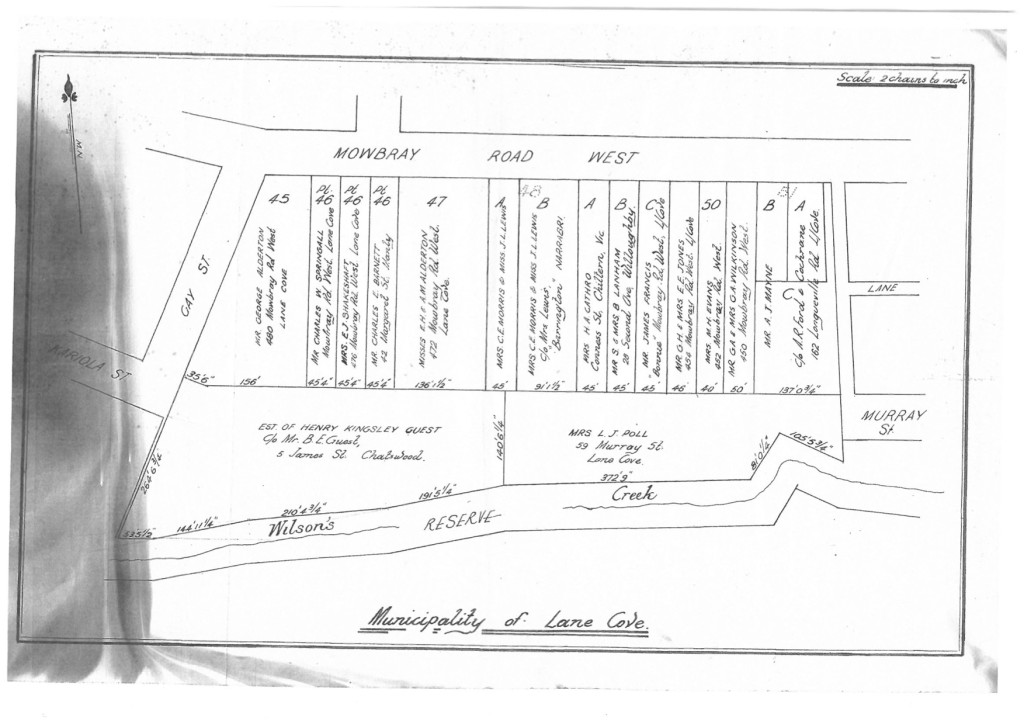 Scale 2 chains to inch
NW
MOWBRAY ROAD WEST
GAY ST.
MARIOLA ST
45
MR. GEORGE ALDERTON
480 Mowbray Rd West
LANE COVE
Pt.
46
MR CHARLES W. SPRINGALL
Mowbray Rd West. Lane Cove
Pt
46
MRS. E.J. SHAKESHAFT.
476 Mowbray Rd. West Lane Cove
Pt
46
MR. CHARLES E. BARNETT
42 Margaret St. Manly
47
MISSES E.H. & A.M. ALDERTON
472 Mowbray Rd West.
Lane Cove.
48
A
MRS C.E. MORRIS & MISS J.L. LEWIS
B
MRS C.E. MORRIS & MISS J.L. LEWIS
C/o Mrs Lewis,
NARRABRI.
A
MRS H.I. CATHRO
Conness St. Chiltern, Vic
B
MR S. & MRS B. LANHAM
Willoughby.
C
MR. JAMES FRANCIS
"Bonnie" Mowbray Rd. West, L/Cove
MR. G.H. & MRS. E.E. JONES
Mowbray Rd. West. L/Cove
50
MRS. M.H. EVANS
452 Mowbray Rd. West
MR G.A. & MRS G.A. WILKINSON
450 Mowbray Rd. West.
51
B
MR. A.J. MAYNE
A
C/o A.R. Ford & Cochrane
162 Longueville Rd. L/Cove.
LANE
MURRAY
St.
35'6"
156'
45'4"
45'4"
45'4"
136'1½"
45'
91'1½"
45'
45'
45'
46'
40'
50'
137'0¾"
EST. OF HENRY KINGSLEY GUEST
C/o Mr. B.E. Guest,
5 James St. Chatswood.
140'6¼"
MRS L.J. POLL
59 Murray St.
Lane Cove.
372'9"
81'0¼"
105'5¾"
264'6¾"
144'11¼"
210'4¾"
191'5¼"
Wilson's Creek
RESERVE
Municipality of Lane Cove.